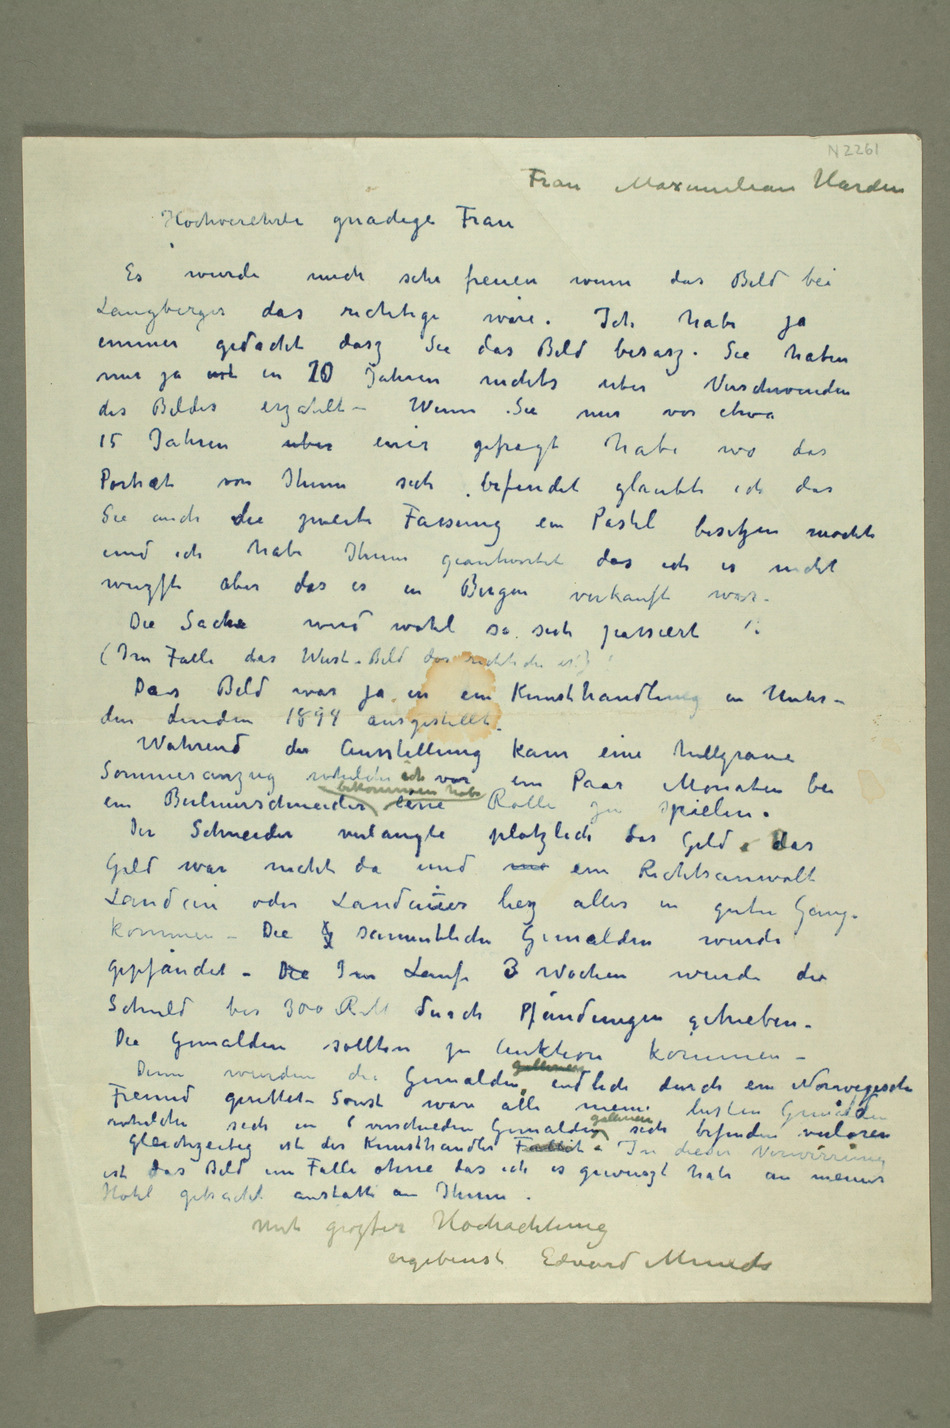 N 2261
Frau Maximilian Harden
Hochverehrte gnadige Frau
Es wurde mich sehr freuen wenn das Bild bei
Langberger das richtige wäre. Ich habe ja
immer gedacht dasz Sie das Bild besasz. Sie haben
mir ja in 20 Jahren nichts uber Verschwinden
des Bildes erzahlt – Wenn Sie mir vor etwa
15 Jahren uber gefragt habe wo das
Portræt von Ihnen sich befindet glaubte ich das
Sie auch die zweite Fassung ein Pastel besitzen mochte
und ich habe Ihnen geantwortet das ich es nicht
wuszte aber das es in Bergen verkauft war.
Die Sache wird wohl so sich passiert !:
(Im Falle das Bild das richtiche ist)
Das Bild war ja in ein Kunsthandlung in Unter-
den Linden 1894 ausgestellt.
Wahrend der Ausstellung kam eine hellgraue
Sommeranzug whelche ich vor ein Paar Monaten bei
bekommen habe
ein Berlinerschneider eine Rolle zu spielen.
Der Schneider verlangte plotzlich das Geld. Das
Geld war nicht da und ein Rechtsanwalt
Landau oder Landauer liesz alles in guter Gang
kommen – Die sammtliche Gemalden wurde
gepfändet – Im Laufe 3 Wochen wurde die
Schuld bis 300 RM durch Pfändungen getrieben –
Die Gemalden sollten zu Auktion kommen –
Denn wurden die Gemalden endlich durch ein Norwegische
Freund gerettet – Sonst ware alle meine besten Gemälden
whelche sich in verschieden Gemalden galerien sich befinden verloren
Gleichzeitig ist der Kunsthandler Fallit. In dieser Verwirrung
ist das Bild im Falle ohne das ich es gewuszt habe an meines
Hotel gebracht anstatt an Ihnen.
Mit groszter Hochachtung
ergebenst Edvard Munch